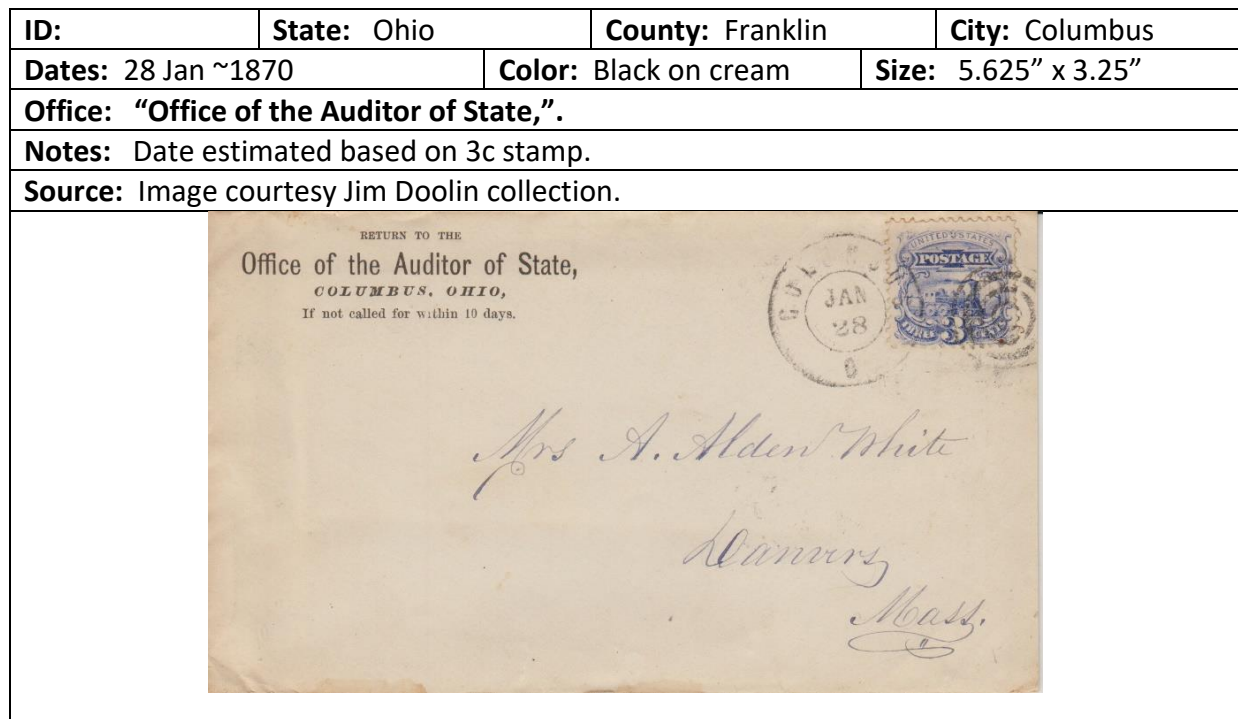 ID: State: Ohio County: Franklin City: Columbus
Dates: 28 Jan ~1870 Color: Black on cream Size: 5.625” x 3.25”
Office: “Office of the Auditor of State,”.
Notes: Date estimated based on 3c stamp.
Source: Image courtesy Jim Doolin collection.
RETURN TO THE
Office of the Auditor of State,
COLUMBUS, OHIO,
If not called for within 10 days.
JAN
28
O
UNITED STATES
POSTAGE
THREE 3 CENTS
Mrs A. Alden White
Danvers
Mass.